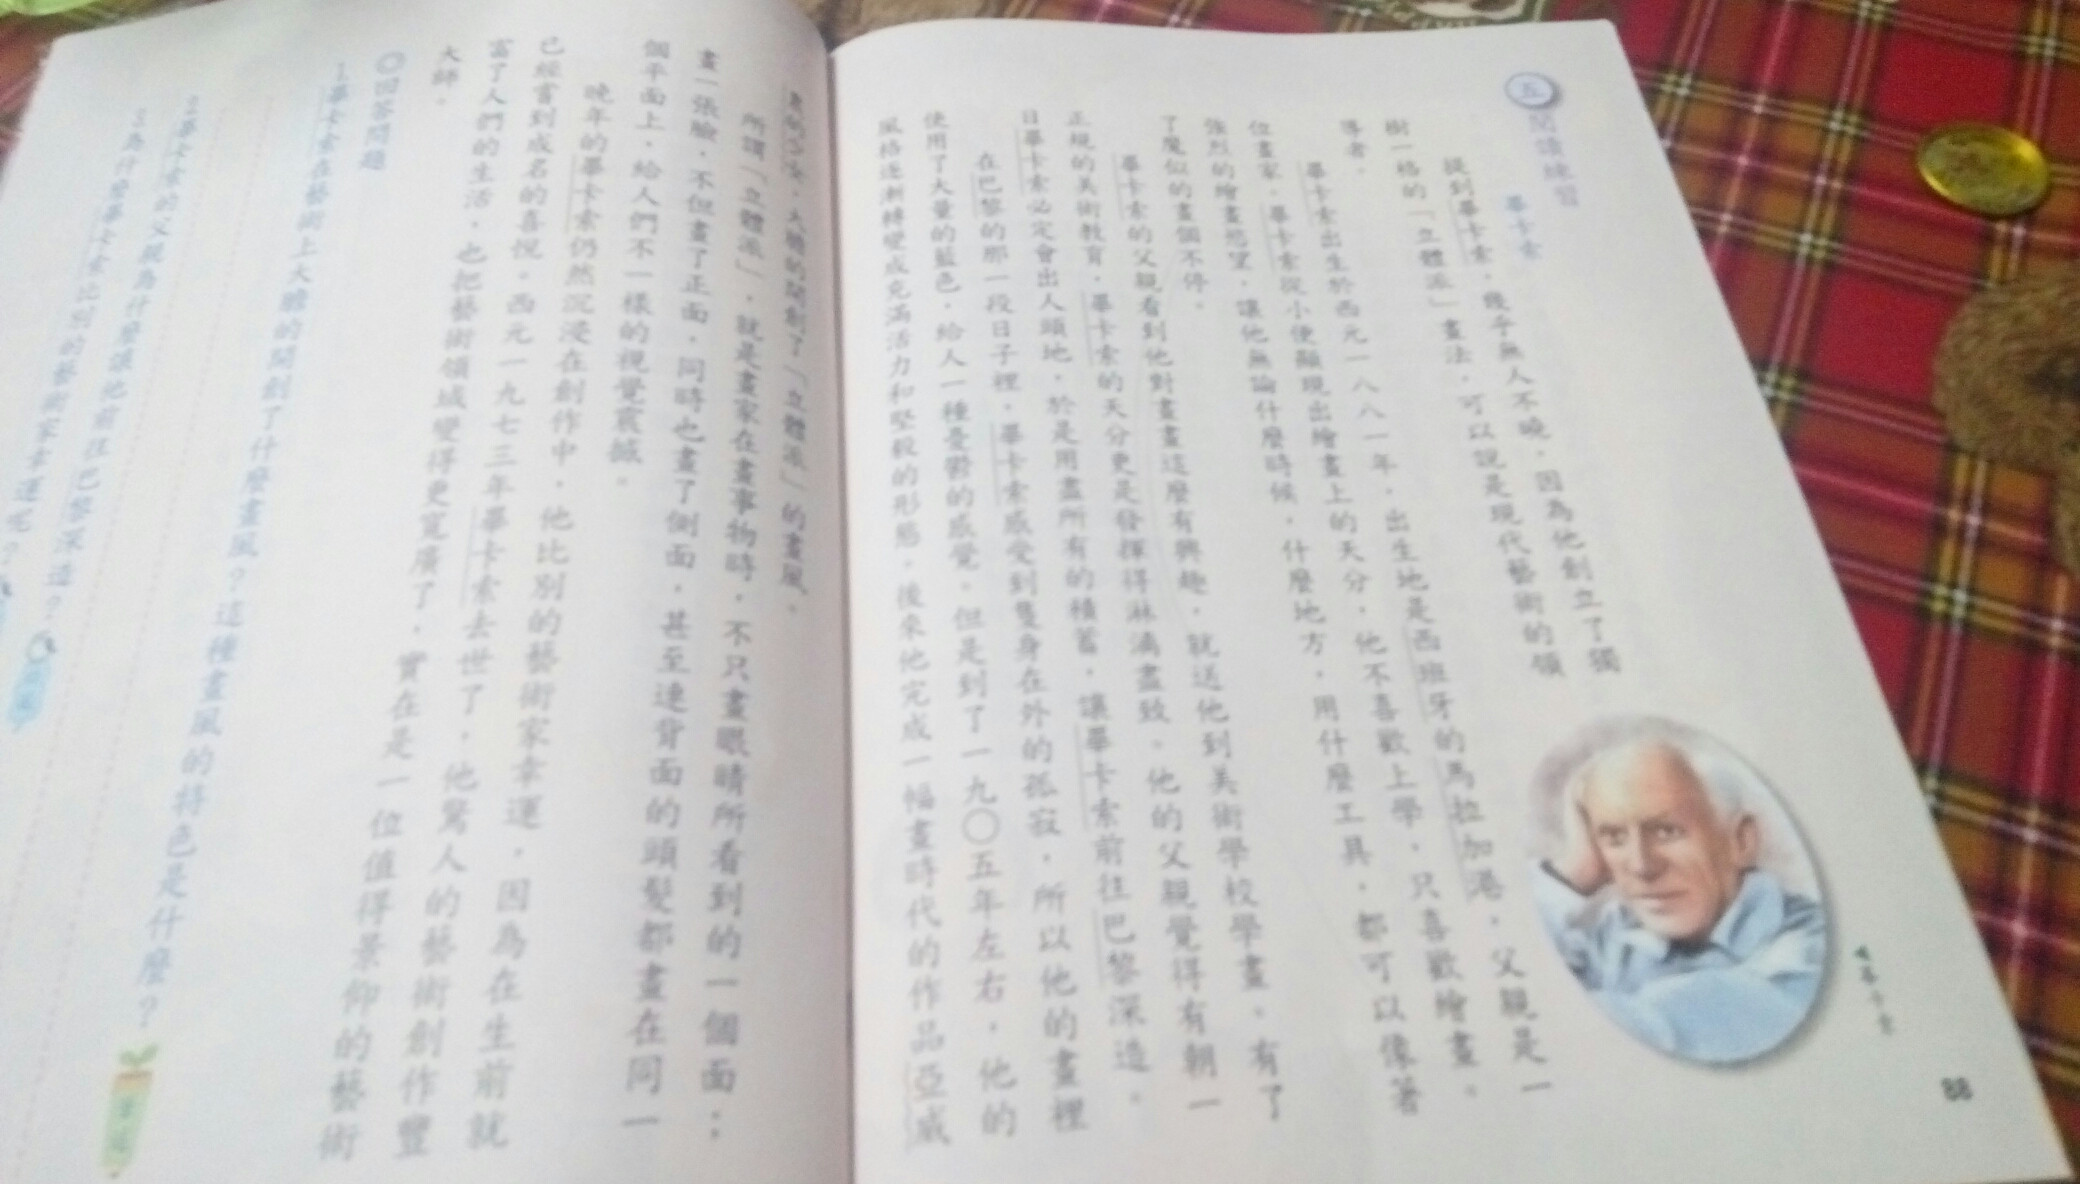 五 閱讀練習
畢卡索
提到畢卡索，幾乎無人不曉，因為他創立了獨
樹一格的「立體派」畫法，可以說是現代藝術的領
導者。
畢卡索出生於西元一八八一年，出生地是西班牙的馬拉加港，父親是一
位畫家。畢卡索從小便顯現出繪畫上的天分，他不喜歡上學，只喜歡繪畫。
強烈的繪畫慾望，讓他無論什麼時候，什麼地方，用什麼工具，都可以像著
了魔似的畫個不停。
畢卡索的父親看到他對畫畫這麼有興趣，就送他到美術學校學畫。有了
正規的美術教育，畢卡索的天分更是發揮得淋漓盡致。他的父親覺得有朝一
日畢卡索必定會出人頭地，於是用盡所有的積蓄，讓畢卡索前往巴黎深造。
在巴黎的那一段日子裡，畢卡索感受到隻身在外的孤寂，所以他的畫裡
使用了大量的藍色，給人一種憂鬱的感覺。但是到了一九〇五年左右，他的
風格逐漸轉變成充滿活力和堅毅的形態，後來他完成一幅畫時代的作品亞威
農的少女，大膽的開創了「立體派」的畫風。
所謂「立體派」，就是畫家在畫事物時，不只畫眼睛所看到的一個面；
畫一張臉，不但畫了正面，同時也畫了側面，甚至連背面的頭髮都畫在同一
個平面上，給人們不一樣的視覺震撼。
晚年的畢卡索仍然沉浸在創作中，他比別的藝術家幸運，因為在生前就
已經嘗到成名的喜悅。西元一九七三年畢卡索去世了，他驚人的藝術創作豐
富了人們的生活，也把藝術領域變得更寬廣了，實在是一位值得景仰的藝術
大師。
◎回答問題
1.畢卡索在藝術上大膽的開創了什麼畫風？這種畫風的特色是什麼？
2.畢卡索的父親為什麼讓他前往巴黎深造？
3.為什麼畢卡索比別的藝術家幸運呢？
畢卡索
88